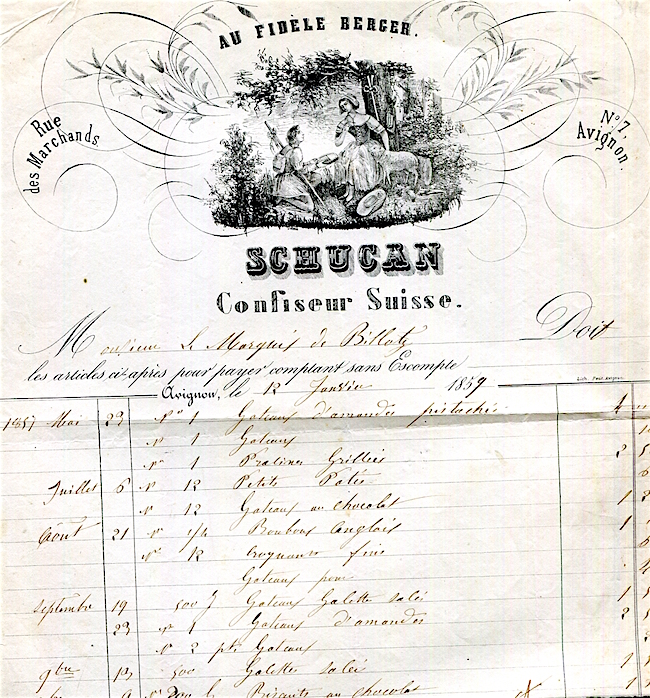 AU FIDÈLE BERGER.
Rue
des Marchands
N° 7,
Avignon.
SCHUCAN
Confiseur Suisse.
Monsieur Le Marquis de Doit
les articles ci-après pour payer comptant sans Escompte
Avignon, le 12 Janvier 1859
Mai 29 N° 1 Gateaux d'amandes pistache 4
N° 1 Gateaux
N° 1 Pralines Grillées 2
Juillet 6 N° 12 Petits Patés
N° 12 Gateaux au chocolat 1
Août 21 N° 1/4 Bonbons anglais 1
N° 12 fins
Gateaux pour
Septembre 19 500 g Gateaux Galette salés 1
29 N° 1 Gateaux d'amandes 2
N° 2 pts Gateaux
9bre 500 Galettes salés 1
au chocolat